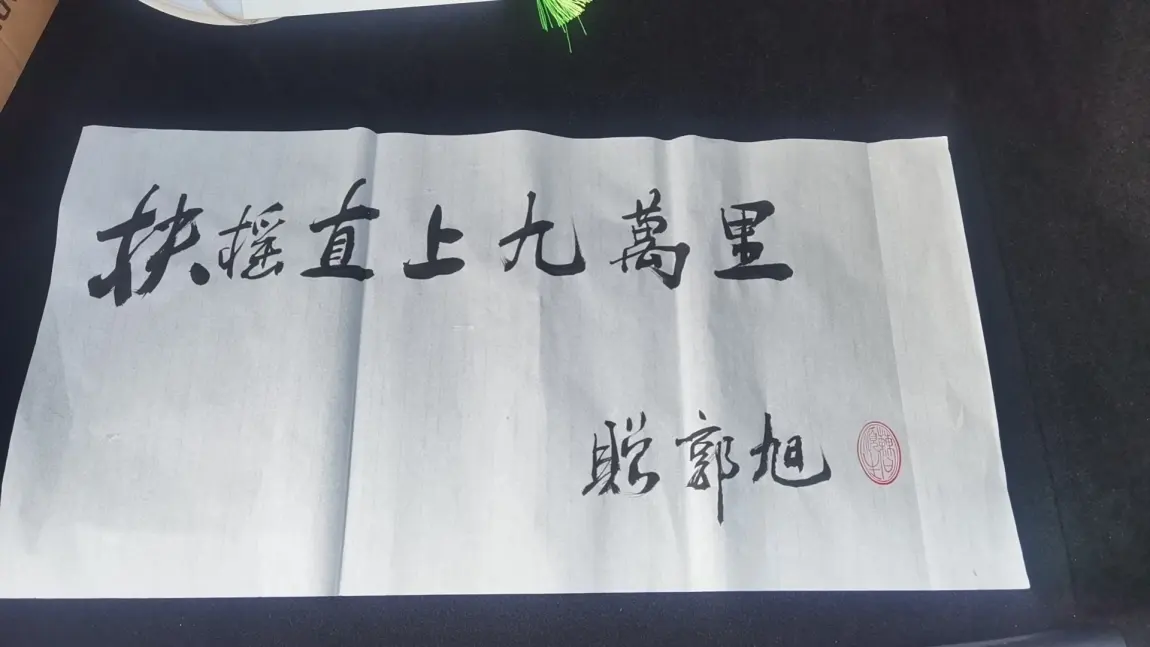 扶摇直上九萬里
贈郭旭